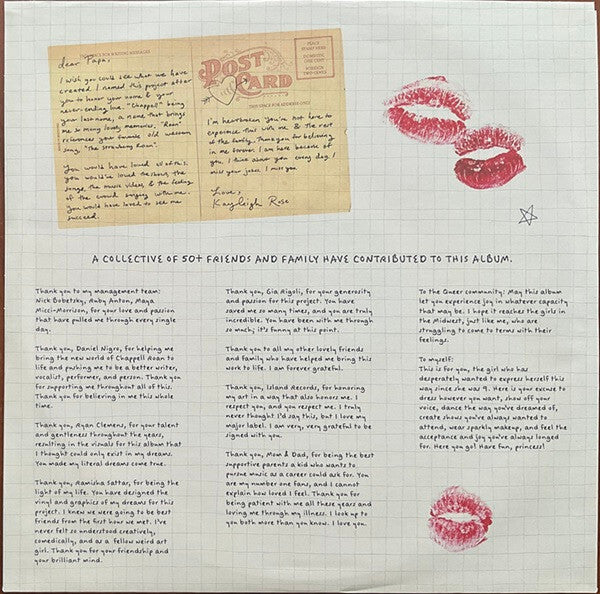 dear Papa,
I wish you could see what we have
created. I named this project after
you to honor your name & your
never-ending love. "Chappell" being
your last name, a name that brings
me so many lovely memories. "Roan"
references your favorite old western
song, "The Strawberry Roan".
You would have loved all of this.
You would've loved the shows, the
songs, the music videos, & the feeling
of the crowd singing with me.
You would have loved to see me
succeed.
POST
CARD
PLACE
STAMP HERE
DOMESTIC
ONE CENT
FOREIGN
TWO CENTS
THIS SPACE FOR ADDRESS ONLY
I'm heartbroken you're not here to
experience this with me & the rest
of the family. Thank you for believing
in me forever. I am here because of
you. I think about you every day. I
miss your jokes. I miss you.
Love,
Kayleigh Rose
A COLLECTIVE OF 50+ FRIENDS AND FAMILY HAVE CONTRIBUTED TO THIS ALBUM.
Thank you to my management team:
Nick Bobetsky, Ruby Anton, Maya
Micci-Morrison, for your love and passion
that have pulled me through every single
day.
Thank you, Daniel Nigro, for helping me
bring the new world of Chappell Roan to
life and pushing me to be a better writer,
vocalist, performer, and person. Thank you
for supporting me throughout all of this.
Thank you for believing in me this whole
time.
Thank you, Ryan Clemens, for your talent
and gentleness throughout the years,
resulting in the visuals for this album that
I thought could only exist in my dreams.
You made my literal dreams come true.
Thank you, Ramisha Sattar, for being the
light of my life. You have designed the
vinyl and graphics of my dreams for this
project. I knew we were going to be best
friends from the first hour we met. I've
never felt so understood creatively,
comedically, and as a fellow weird art
girl. Thank you for your friendship and
your brilliant mind.
Thank you, Gia Rigoli, for your generosity
and passion for this project. You have
saved me so many times, and you are truly
incredible. You have been with me through
so much; it's funny at this point.
Thank you to all my other lovely friends
and family who have helped me bring this
work to life. I am forever grateful.
Thank you, Island Records, for honoring
my art in a way that also honors me. I
respect you, and you respect me. I truly
never thought I'd say this, but I love my
major label. I am very, very grateful to be
signed with you.
Thank you, Mom & Dad, for being the best
supportive parents a kid who wants to
pursue music as a career could ask for. You
are my number one fans, and I cannot
explain how loved I feel. Thank you for
being patient with me all these years and
loving me through my illness. I look up to
you both more than you know. I love you.
To the Queer community: May this album
let you experience joy in whatever capacity
that may be. I hope it reaches the girls in
the Midwest, just like me, who are
struggling to come to terms with their
feelings.
To myself:
This is for you, the girl who has
desperately wanted to express herself this
way since she was 9. Here is your excuse to
dress however you want, show off your
voice, dance the way you've dreamed of,
create shows you've always wanted to
attend, wear sparkly makeup, and feel the
acceptance and joy you've always longed
for. Here you go! Have fun, princess!